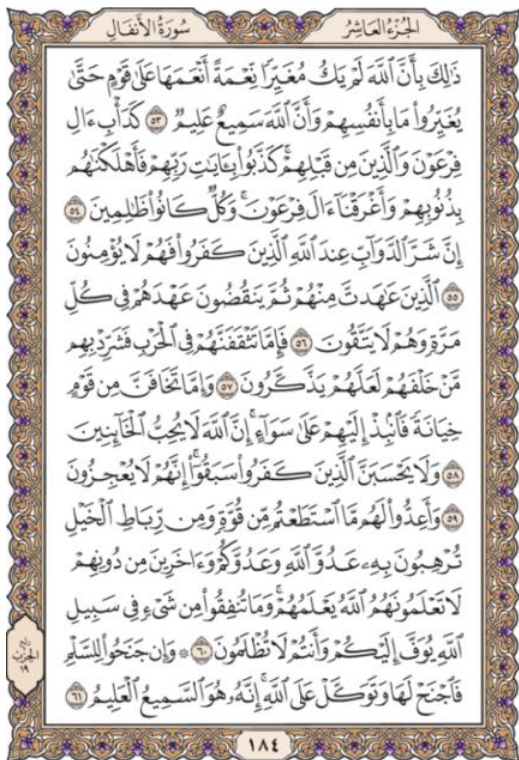 الجُزْءُ العَاشِرُ
سُورَةُ الأَنفَالِ
ذَٰلِكَ بِأَنَّ ٱللَّهَ لَمْ يَكُ مُغَيِّرًا نِّعْمَةً أَنْعَمَهَا عَلَىٰ قَوْمٍ حَتَّىٰ
يُغَيِّرُوا۟ مَا بِأَنفُسِهِمْ وَأَنَّ ٱللَّهَ سَمِيعٌ عَلِيمٌ ٥٣ كَدَأْبِ ءَالِ
فِرْعَوْنَ وَٱلَّذِينَ مِن قَبْلِهِمْ ۚ كَذَّبُوا۟ بِـَٔايَٰتِ رَبِّهِمْ فَأَهْلَكْنَٰهُم
بِذُنُوبِهِمْ وَأَغْرَقْنَآ ءَالَ فِرْعَوْنَ ۚ وَكُلٌّ كَانُوا۟ ظَٰلِمِينَ ٥٤
إِنَّ شَرَّ ٱلدَّوَآبِّ عِندَ ٱللَّهِ ٱلَّذِينَ كَفَرُوا۟ فَهُمْ لَا يُؤْمِنُونَ
٥٥ ٱلَّذِينَ عَٰهَدتَّ مِنْهُمْ ثُمَّ يَنقُضُونَ عَهْدَهُمْ فِى كُلِّ
مَرَّةٍ وَهُمْ لَا يَتَّقُونَ ٥٦ فَإِمَّا تَثْقَفَنَّهُمْ فِى ٱلْحَرْبِ فَشَرِّدْ بِهِم
مَّنْ خَلْفَهُمْ لَعَلَّهُمْ يَذَّكَّرُونَ ٥٧ وَإِمَّا تَخَافَنَّ مِن قَوْمٍ
خِيَانَةً فَٱنۢبِذْ إِلَيْهِمْ عَلَىٰ سَوَآءٍ ۚ إِنَّ ٱللَّهَ لَا يُحِبُّ ٱلْخَآئِنِينَ
٥٨ وَلَا يَحْسَبَنَّ ٱلَّذِينَ كَفَرُوا۟ سَبَقُوٓا۟ ۚ إِنَّهُمْ لَا يُعْجِزُونَ
٥٩ وَأَعِدُّوا۟ لَهُم مَّا ٱسْتَطَعْتُم مِّن قُوَّةٍ وَمِن رِّبَاطِ ٱلْخَيْلِ
تُرْهِبُونَ بِهِۦ عَدُوَّ ٱللَّهِ وَعَدُوَّكُمْ وَءَاخَرِينَ مِن دُونِهِمْ
لَا تَعْلَمُونَهُمُ ٱللَّهُ يَعْلَمُهُمْ ۚ وَمَا تُنفِقُوا۟ مِن شَىْءٍ فِى سَبِيلِ
ٱللَّهِ يُوَفَّ إِلَيْكُمْ وَأَنتُمْ لَا تُظْلَمُونَ ٦٠ ۞ وَإِن جَنَحُوا۟ لِلسَّلْمِ
فَٱجْنَحْ لَهَا وَتَوَكَّلْ عَلَى ٱللَّهِ ۚ إِنَّهُۥ هُوَ ٱلسَّمِيعُ ٱلْعَلِيمُ ٦١
الحِزْبُ
١٩
١٨٤